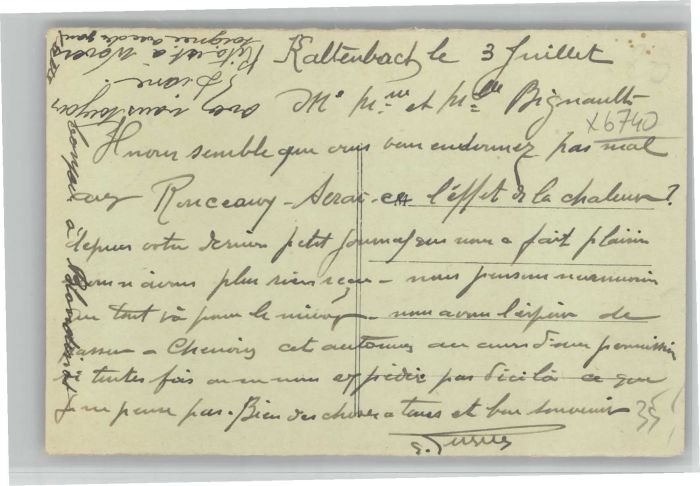 Kaltenbach, le 3 Juillet
Mr Mme et Mlle Bignault
X6740
Il nous semble que vous vous endormez pas mal
aux Ronceaux - Serait-ce l'effet de la chaleur ?
depuis votre dernier petit journal qui nous a fait plaisir
nous n'avons plus rien reçu - nous pensons néanmoins
que tout va pour le mieux - nous avons l'espoir de
passer a cet automne au cours d'une permission
si toutes fois on ne nous expédie pas d'ici là ce que
je ne pense pas. Bien des choses a tous et bon souvenir
35
avez vous toujours
Diane ?
à